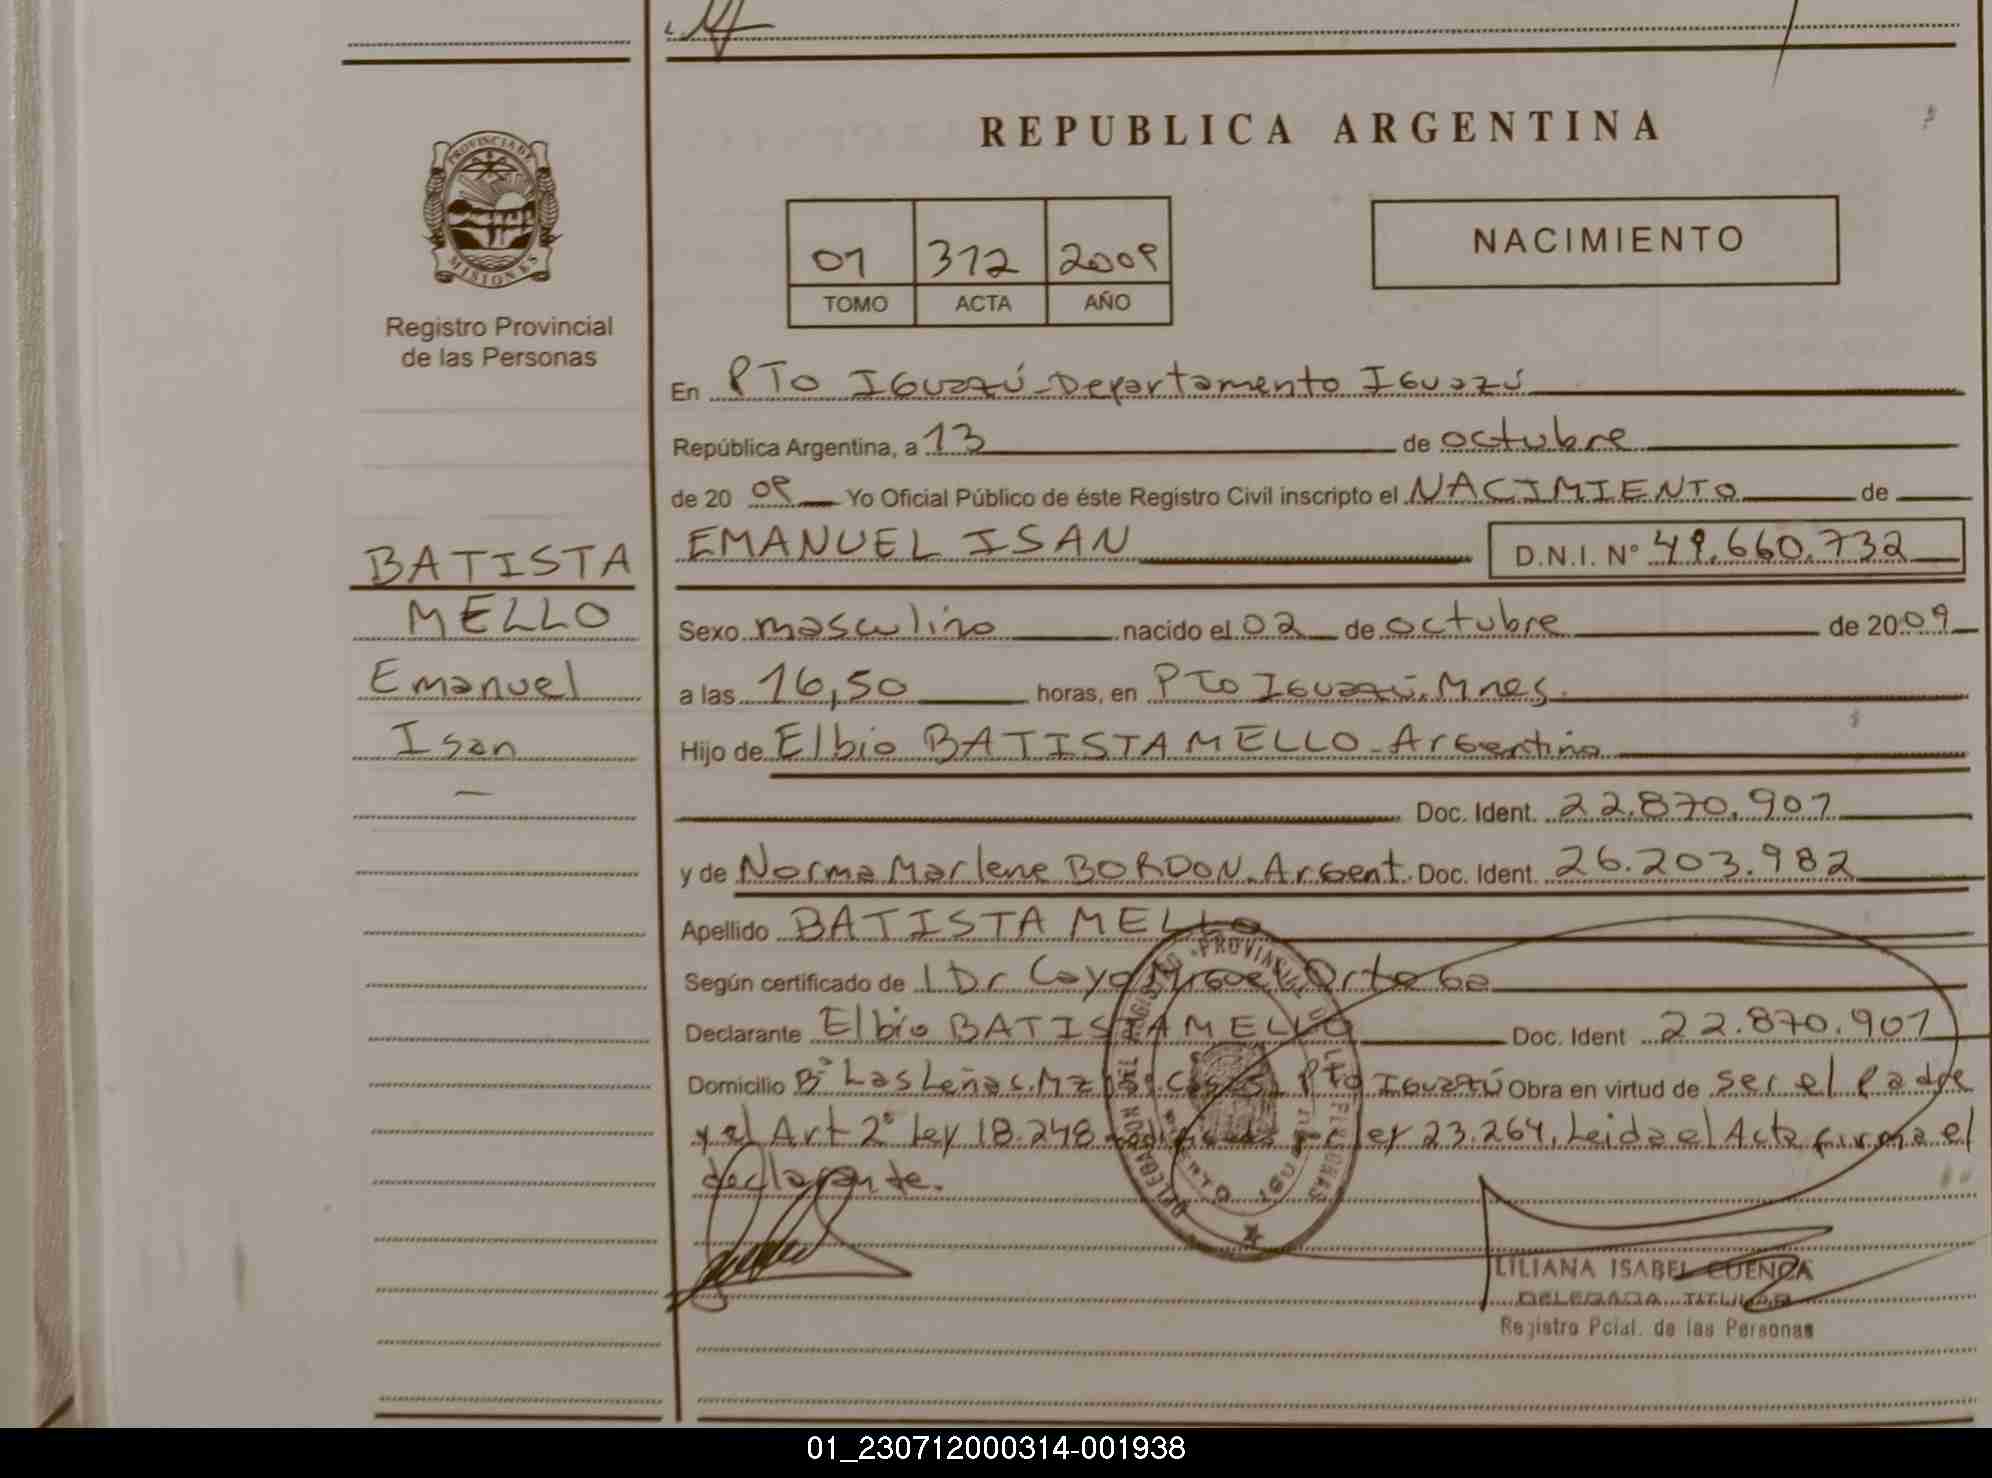 REPUBLICA ARGENTINA
PROVINCIA DE
MISIONES
Registro Provincial
de las Personas
01 312 2009
TOMO ACTA AÑO
NACIMIENTO
En PTO IGUAZÚ - Departamento IGUAZÚ
República Argentina, a 13 de octubre
de 20 09 Yo Oficial Público de éste Registro Civil inscripto el NACIMIENTO de
BATISTA
MELLO
Emanuel
Isan
EMANUEL ISAN D.N.I. Nº 49.660.732
Sexo masculino nacido el 02 de octubre de 20 09
a las 16,50 horas, en PTO IGUAZÚ. Mnes.
Hijo de Elbio BATISTA MELLO - Argentino
Doc. Ident. 22.870.901
y de Norma Marlene BORDON. Argent. Doc. Ident. 26.203.982
Apellido BATISTA MELLO
Según certificado de l Dr Cayo Miguel Ortega
Declarante Elbio BATISTA MELLO Doc. Ident 22.870.901
Domicilio Bº Las Leñas. Mz PTO IGUAZÚ Obra en virtud de ser el padre
y el Art 2º Ley 18.248 modificada por ley 23.264. Leida el Acta firma el
declarante.
LILIANA ISABEL CUENCA
DELEGADA TITULAR
Registro Pcial. de las Personas
01_230712000314-001938